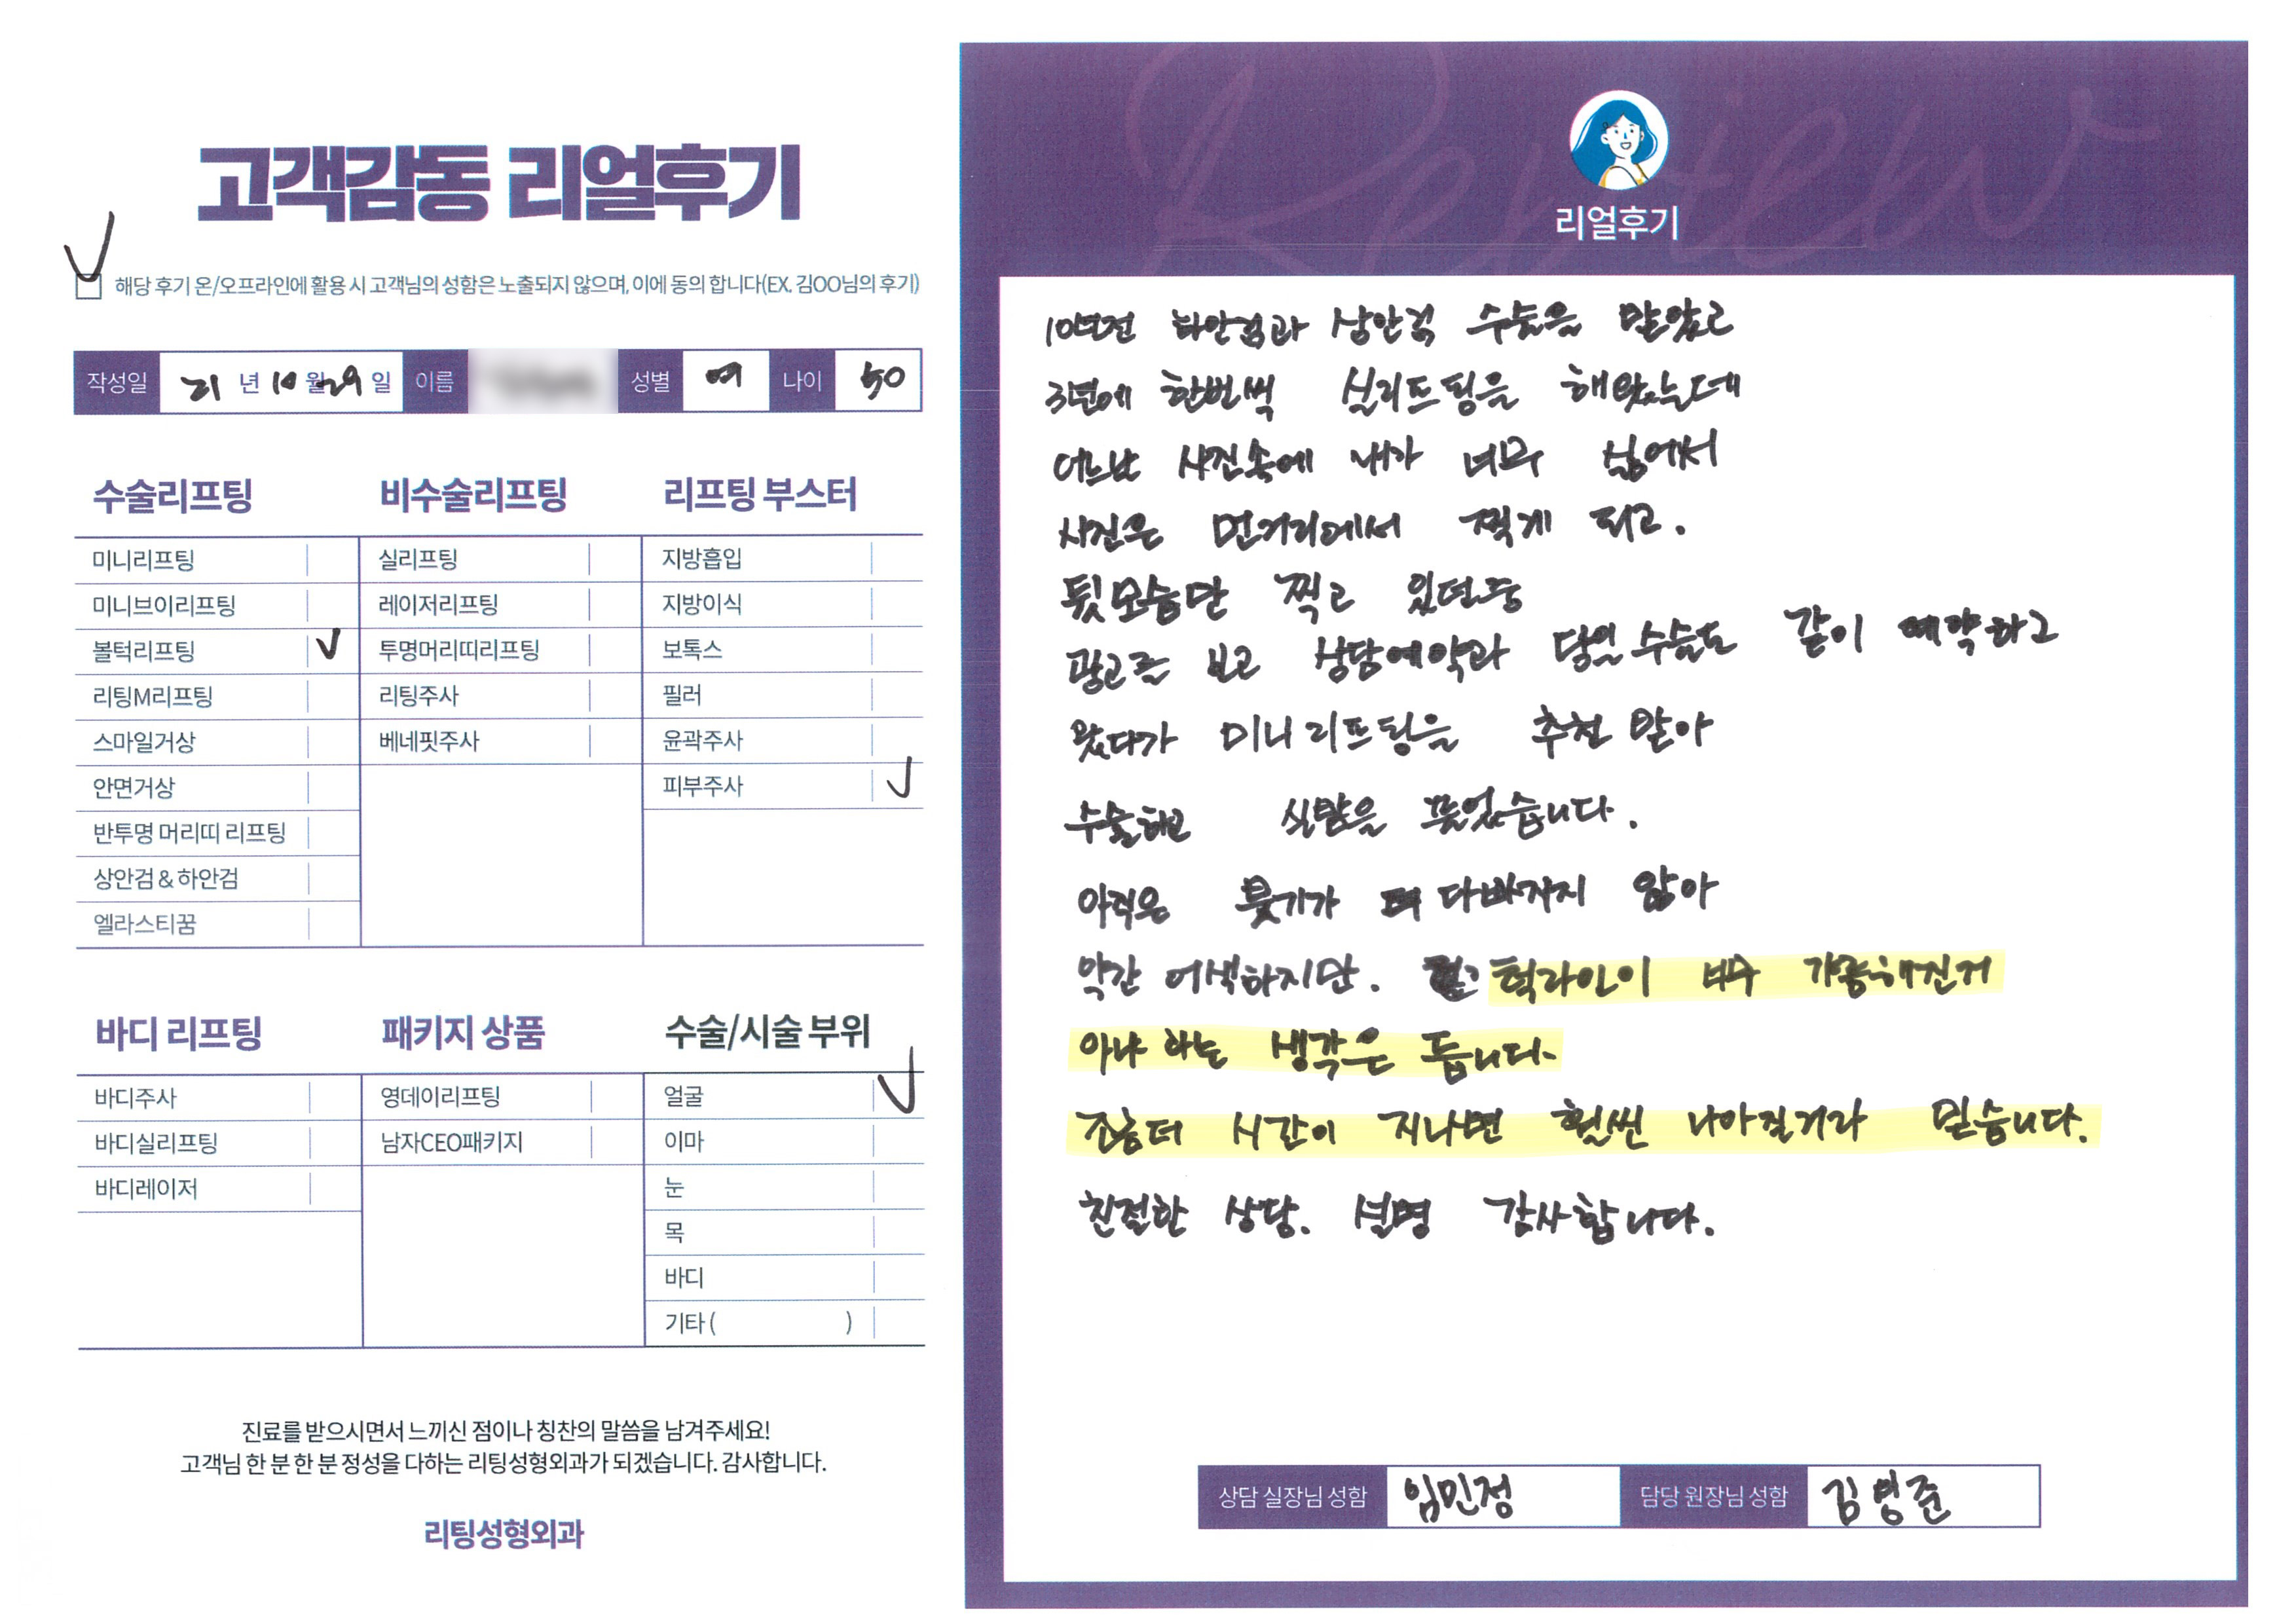 고객감동 리얼후기
해당 후기 온/오프라인에 활용 시 고객님의 성함은 노출되지 않으며, 이에 동의 합니다(EX. 김OO님의 후기)
작성일 21 년 10 월 29 일 이름 성별 여 나이 50
수술리프팅
미니리프팅
미니브이리프팅
볼턱리프팅
리팅M리프팅
스마일거상
안면거상
반투명 머리띠 리프팅
상안검 & 하안검
엘라스티꿈
비수술리프팅
실리프팅
레이저리프팅
투명머리띠리프팅
리팅주사
베네핏주사
리프팅 부스터
지방흡입
지방이식
보톡스
필러
윤곽주사
피부주사
바디 리프팅
바디주사
바디실리프팅
바디레이저
패키지 상품
영데이리프팅
남자CEO패키지
수술/시술 부위
얼굴
이마
눈
목
바디
기타 ( )
진료를 받으시면서 느끼신 점이나 칭찬의 말씀을 남겨주세요!
고객님 한 분 한 분 정성을 다하는 리팅성형외과가 되겠습니다. 감사합니다.
리팅성형외과
Review
리얼후기
10년전 하안검과 상안검 수술을 받았고
3년에 한번씩 실리프팅을 해왔는데
어느날 사진속에 내가 너무 싫어서
사진은 먼거리에서 찍게 되고.
뒷모습만 찍고 있던중
광고를 보고 상담예약과 당일수술도 같이 예약하고
왔다가 미니리프팅을 추천 받아
수술하고 실밥을 풀었습니다.
아직은 붓기가 다빠지지 않아
약간 어색하지만. 턱라인이 너무 갸름해진거
아냐 하는 생각은 듭니다.
조금더 시간이 지나면 훨씬 나아질거라 믿습니다.
친절한 상담. 설명 감사합니다.
상담 실장님 성함 임민정 담당 원장님 성함 김영준